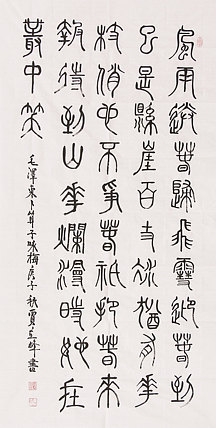 風雨送春歸飛雪迎春到
已是縣崖百丈冰猶有華
枝俏也不爭春祇把春來
報待到山華爛漫時她在
叢中笑
毛澤東卜算子咏梅庚子秋賈峰書